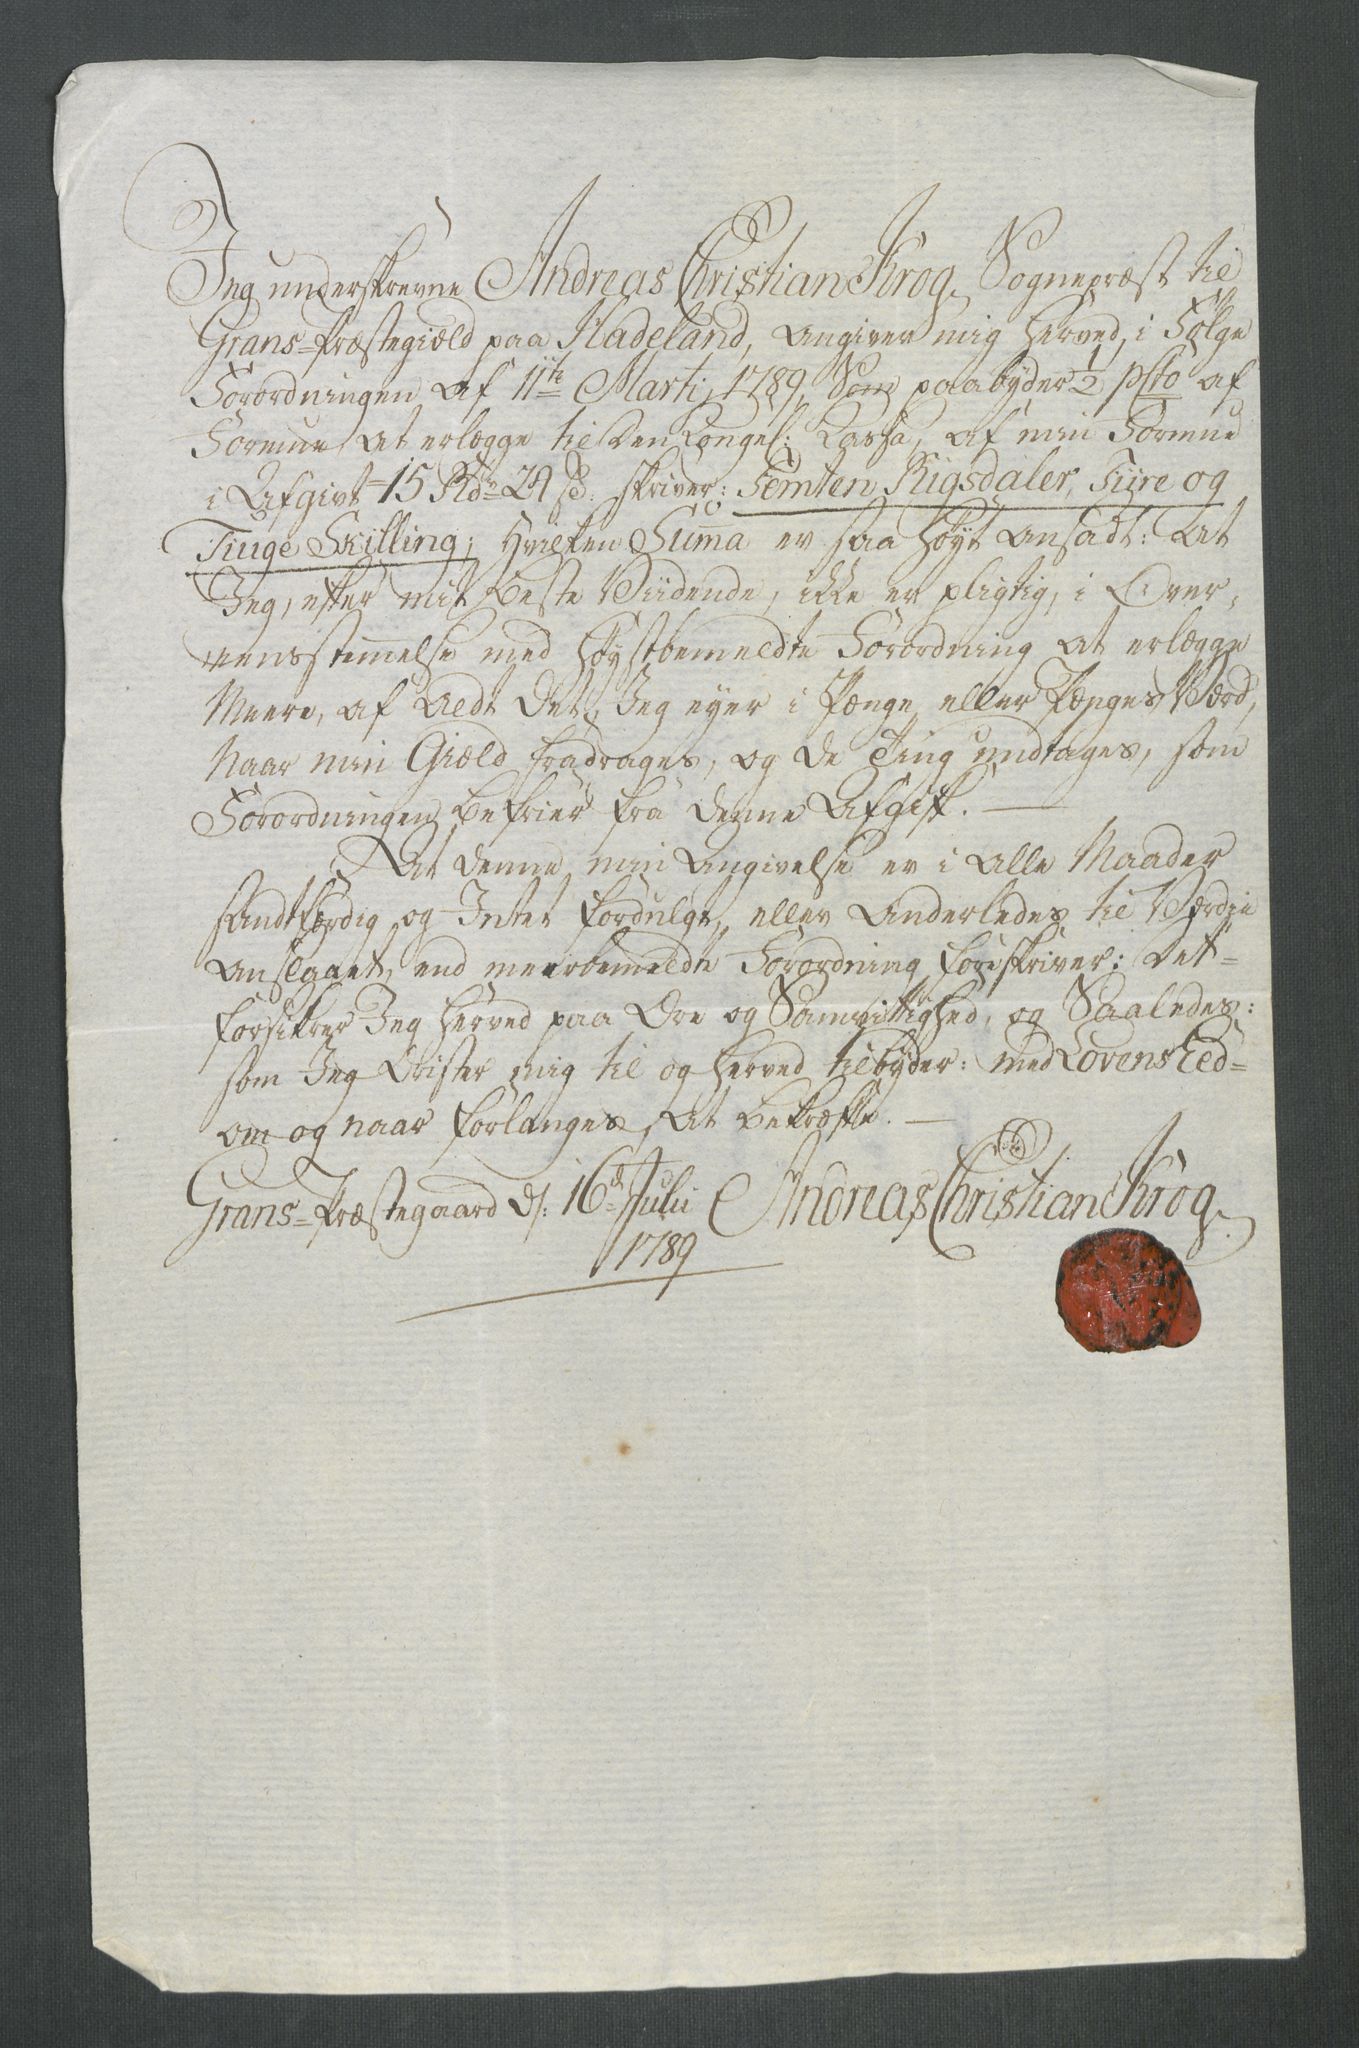 Jeg underskrevne Andreas Christian Krog, Sognepræst til
Grans-Præstegiæld paa Hadeland, angiver mig herved, i Følge
Forordningen af 11te Martj 1789, som paabyder 1/2 pCto af
Formue, at erlægge til den Kongel: Kassa, af min Formue
i Afgivt 15 Rdr 24 s: skriver: Femten Rigsdaler, Fiire og
Tiuge Skilling; hvilken Suma er saa høyt ansadt: at
Jeg, efter mit beste Viidende, ikke er pligtig, i Over-
eensstemelse med høystbemeldte Forordning at erlægge
Meere, af aldt det, Jeg eyer i Penge eller Penges Værd,
Naar min Giæld fradrages, og de Ting undtages, som
Forordningen befrier fra denne Afgift. —
At denne min Angivelse er i alle Maader
sandfærdig og Intet fordulgt, eller anderledes til Værdie
anslaaet, end meerbemeldte Forordning foreskriver: det-
forsikrer Jeg herved paa Ære og Samvittighed, og Saaledes:
som Jeg drister mig til og herved tilbyder: med Lovens Eed-
om og naar forlanges, at bekræfte. —
Grans-Præstegaard d: 16d Julii Andreas Christian Krog.
1789